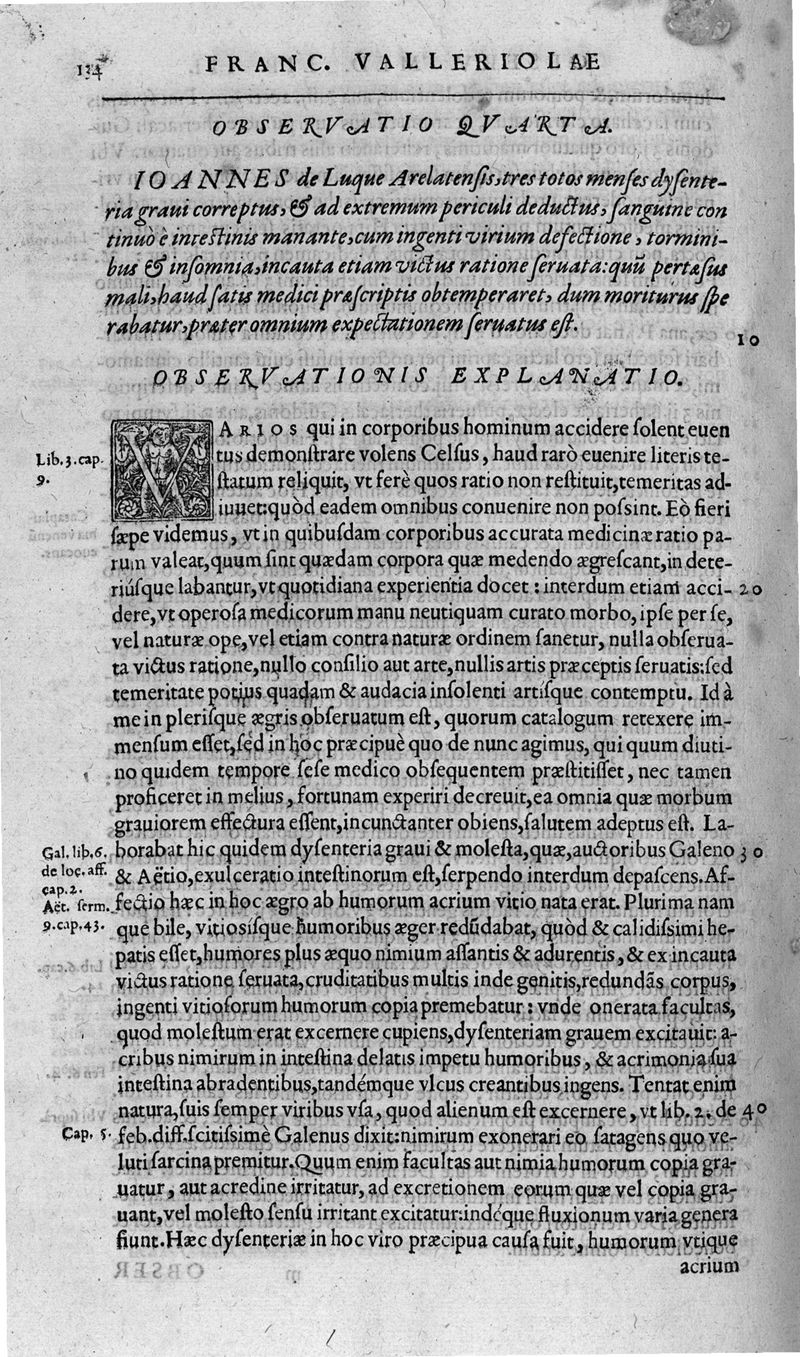 134
FRANC. VALLERIOLAE
OBSERVATIO QVARTA.
IOANNES de Luque Arelatensis, tres totos menses dysente-
ria graui correptus, & ad extremum periculi deductus, sanguine con
tinuò è intestinis manante, cum ingenti virium defectione, tormini-
bus & insomnia, incauta etiam victus ratione seruata: quũ pertæsus
mali, haud satis medici præscriptis obtemperaret, dum moriturus spe
rabatur, præter omnium expectationem seruatus est.
10
OBSERVATIONIS EXPLANATIO.
VARIOS qui in corporibus hominum accidere solent euen
Lib. 3. cap.
tus demonstrare volens Celsus, haud rarò euenire literis te-
9.
statum reliquit, vt ferè quos ratio non restituit, temeritas ad-
iuuet: quòd eadem omnibus conuenire non possint. Eò fieri
sæpe videmus, vt in quibusdam corporibus accurata medicinæ ratio pa-
rum valeat, quum sint quædam corpora quæ medendo ægrescant, in dete-
riúsque labantur, vt quotidiana experientia docet: interdum etiam acci- 20
dere, vt operosa medicorum manu neutiquam curato morbo, ipse per se,
vel naturæ ope, vel etiam contra naturæ ordinem sanetur, nulla obserua-
ta victus ratione, nullo consilio aut arte, nullis artis præceptis seruatis: sed
temeritate potius quadam & audacia insolenti artísque contemptu. Id à
me in plerisque ægris obseruatum est, quorum catalogum retexere im-
mensum esset, sed in hoc præcipuè quo de nunc agimus, qui quum diuti-
no quidem tempore sese medico obsequentem præstitisset, nec tamen
proficeret in melius, fortunam experiri decreuit, ea omnia quæ morbum
grauiorem effectura essent, incunctanter obiens, salutem adeptus est. La-
Gal. lib. 6.
borabat hic quidem dysenteria graui & molesta, quæ, auctoribus Galeno 30
de loc. aff.
& Aëtio, exulceratio intestinorum est, serpendo interdum depascens. Af-
cap. 2.
Aët. serm.
fectio hæc in hoc ægro ab humorum acrium vitio nata erat. Plurima nam
9. cap. 43.
que bile, vitiosísque humoribus æger redũdabat, quòd & calidissimi he-
patis esset, humores plus æquo nimium assantis & adurentis, & ex incauta
victus ratione seruata, cruditatibus multis inde genitis, redundãs corpus,
ingenti vitiosorum humorum copia premebatur: vnde onerata facultas,
quod molestum erat excernere cupiens, dysenteriam grauem excitauit: a-
cribus nimirum in intestina delatis impetu humoribus, & acrimonia sua
intestina abradentibus, tandémque vlcus creantibus ingens. Tentat enim
natura, suis semper viribus vsa, quod alienum est excernere, vt lib. 2. de 40
Cap. 5.
feb. diff. scitissimè Galenus dixit: nimirum exonerari eo satagens quo ve-
luti sarcina premitur. Quum enim facultas aut nimia humorum copia gra-
uatur, aut acredine irritatur, ad excretionem eorum quæ vel copia gra-
uant, vel molesto sensu irritant excitatur: indéque fluxionum varia genera
fiunt. Hæc dysenteriæ in hoc viro præcipua causa fuit, humorum vtique
acrium